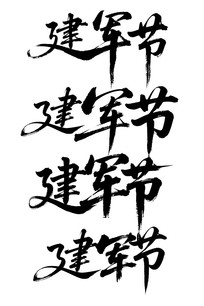 建军节
建军节
建军节
建军节